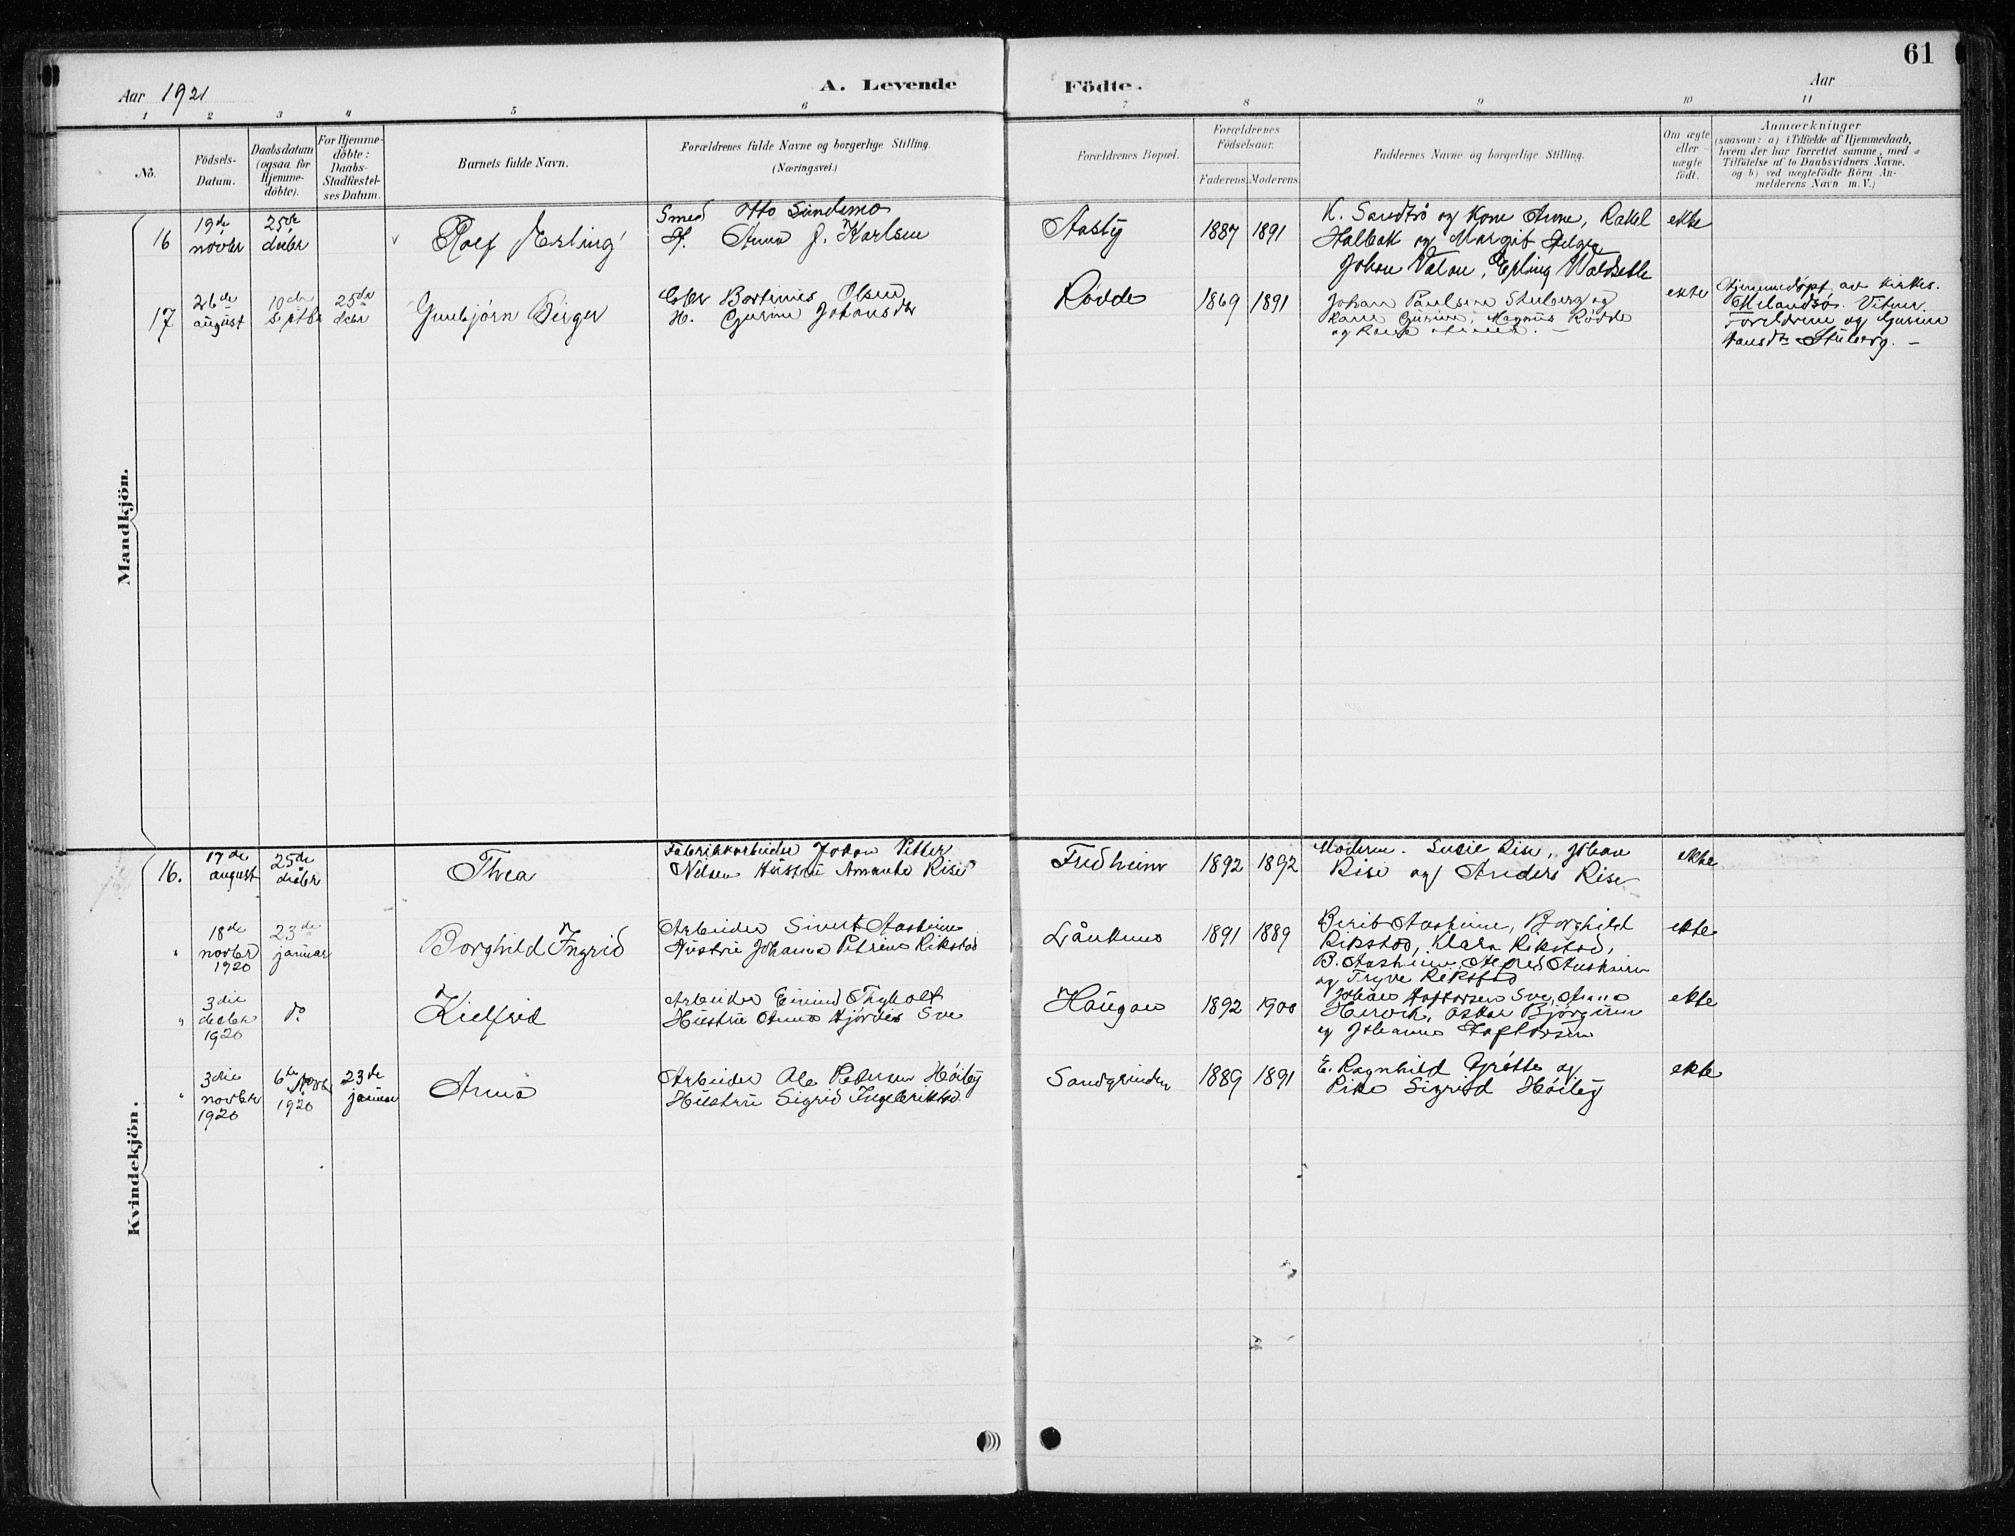 61
Aar 1921 A. Levende Födte. Aar
1 2 3 4 5 6 7 8 9 10 11
No.
Födsels-Datum.
Daabsdatum (ogsaa for Hjemmedöbte).
For Hjemmedöbte: Daabs-Stadfæstelses Datum.
Barnets fulde Navn.
Forældrenes fulde Navne og borgerlige Stilling.
(Næringsvei.)
Forældrenes Bopæl.
Forældrenes Födselsaar.
Faderens. Moderens.
Faddernes Navne og borgerlige Stilling.
Om ægte eller uægte födt.
Anmærkninger
(saasom: a) i Tilfælde af Hjemmedaab,
hvem der har forrettet samme, med
Tilföielse af to Daabsvidners Navne.
og b) ved uægtefödte Börn Anmelderens Navn m. V.)
Mandkjön.
16 19de novbr 25de decbr Rolf Erling Smed Otto Sundsmo
H. Anna J. Karlsen Aasby 1887 1891 K. Sandtrø og Kone Anne, Rakel ekte
Halbak og Margit Helge
Johan Valan, Erling
17 26de august 10de septbr 25de decbr Gunbjørn Birger Bortinus Olsen
H. Gurine Johansdtr Rödde 1869 1891 Johan Paulsen Stuberg og ekte
Kone Gurine, Magnus Rødde
og Kone
Hjemmedøpt av kirkes.
Melandsø. Vitner
Foreldrene og Gurine
Hansdtr Stuberg. -
Kvindekjön.
16. 17de august 25de decbr Thea Fabrikkarbeider Johan Petter
Nilsen Hustru Amanda Rise Fredheim 1892 1892 Moderen. Susie Rise, Johan ekte
Rise og Anders Rise
" 18de novbr 1920 23de januar Borghild Ingrid Arbeider Sivert Aasheim
Hustru Johanna Petrine Rikstad 1891 1889 Berit Aasheim, Borghild ekte
Rikstad, Klara Rikstad,
B. Aasheim, Alfred Aasheim
og Trygve Rikstad
" 3die decbr 1920 do Kjelfrid Arbeider Einind Thyholt
Hustru Anna Hjørdis Sve Haugan 1892 1900 Johan Hafstorsen Sve, Anna ekte
Hervik, Oskar Bjørgum
og Johanne Hafstorsen
" 3die novbr 1920 6te Novbr 1920 23de januar Anna Arbeider Ole Petersen Høiby
Hustru Sigrid Ingebriktsd. Sandgrinden 1889 1891 E. Ragnhild Grøtte og ekte
Pike Sigrid Høiby